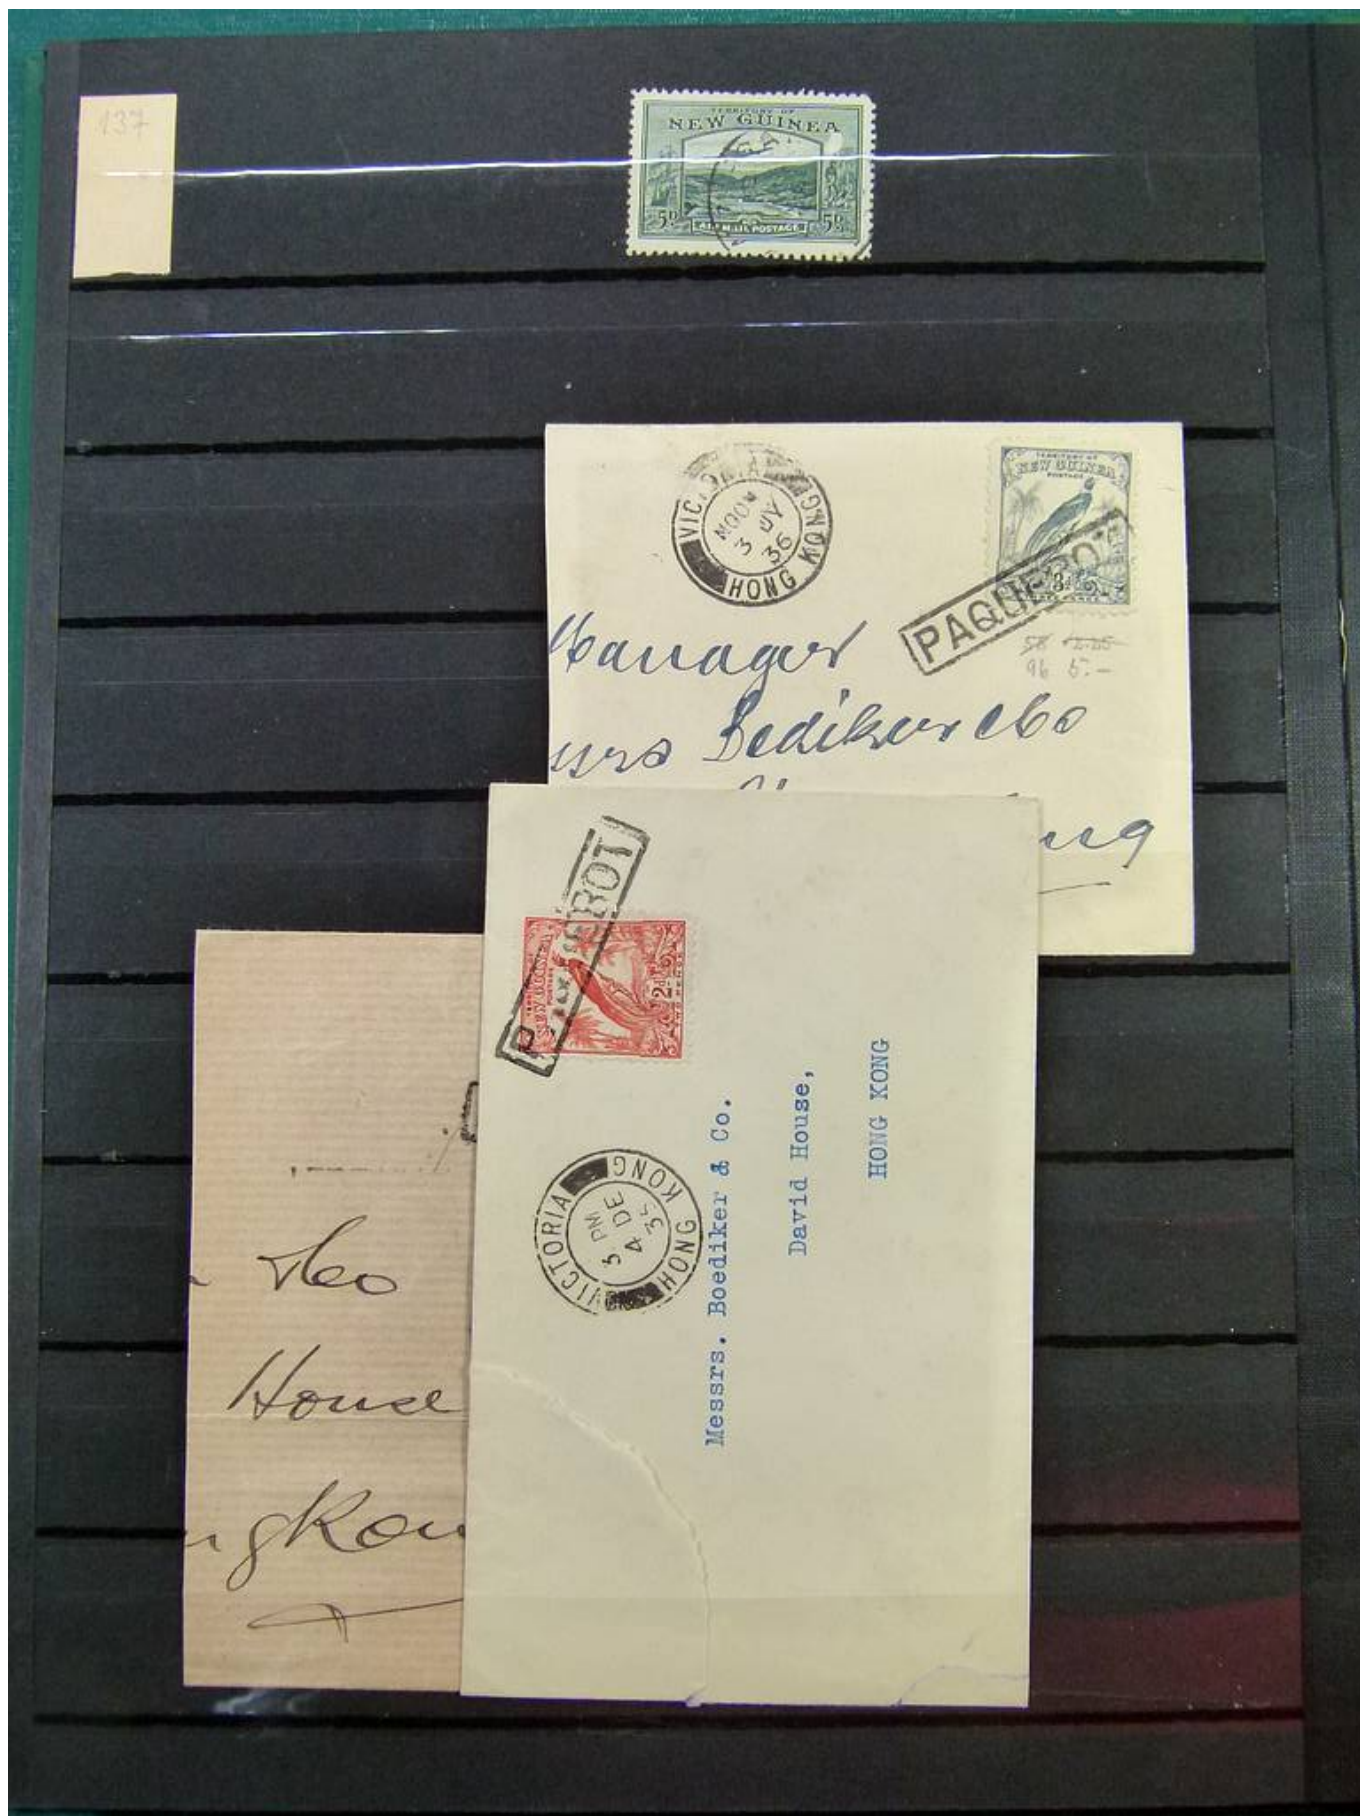 137
TERRITORY OF
NEW GUINEA
5D 5D
AIR MAIL POSTAGE
VICTORIA
HONG KONG
NOON
3 JY
36
TERRITORY OF
NEW GUINEA
POSTAGE
3d
PAQUEBOT
96 5.-
Manager
Bediker &Co
PAQUEBOT
NEW GUINEA
POSTAGE
2d
TWO PENCE
VICTORIA
HONG KONG
3 PM
4 DE
35
Messrs. Boediker & Co.
David House,
HONG KONG
&Co
House
ngkon